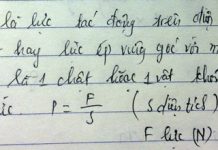 là lực tác động trên diện
hay lực ép vuông góc với m
là 1 chất hoặc 1 vật khố
ực. P = F/S (S diện tích)
F lực (N)